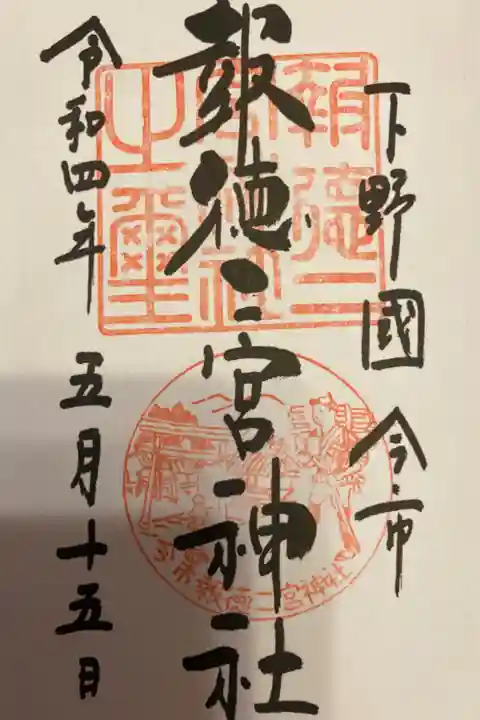 下野國 今市
報徳二宮神社
令和四年 五月十五日
報徳二
宮神社
之璽
今市報徳二宮神社